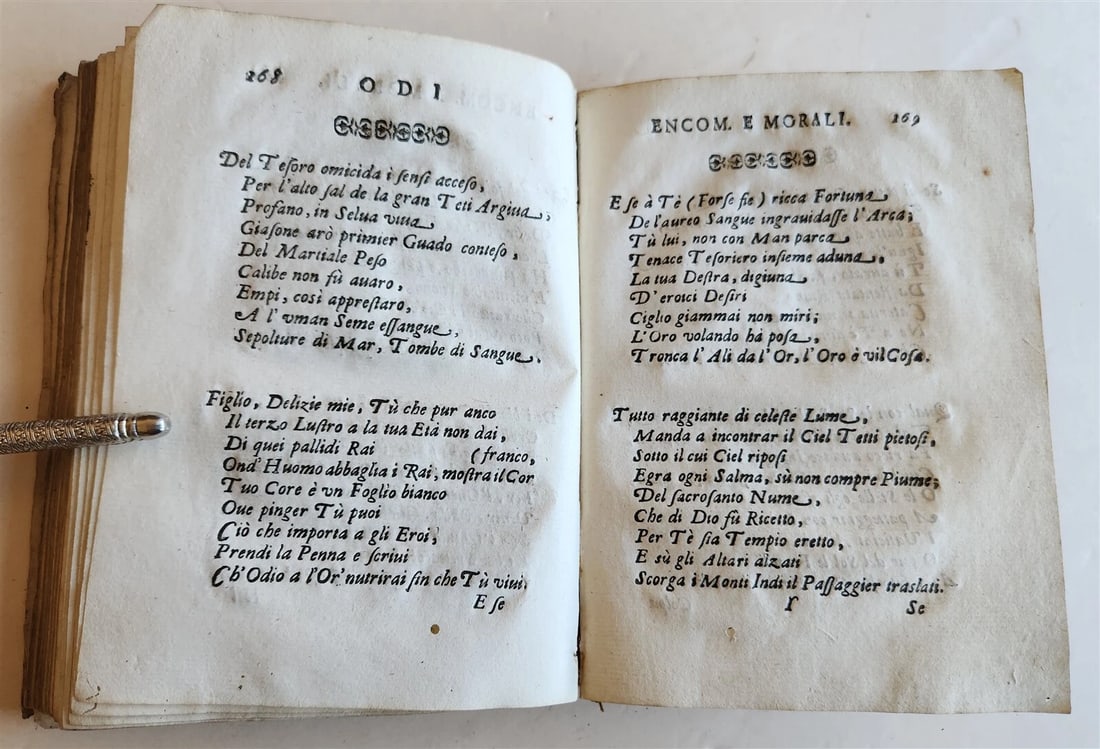 268 ODI
Del Tesoro omicida i sensi acceso,
Per l'alto sal de la gran Teti Argiua,
Profano, in Selua viua
Giasone arò primier Guado conteso,
Del Martiale Peso
Calibe non fù auaro,
Empi, così apprestaro,
A l'vman Seme essangue,
Sepolture di Mar, Tombe di Sangue.
Figlio, Delizie mie, Tù che pur anco
Il terzo Lustro a la tua Età non dai,
Di quei pallidi Rai (franco,
Ond' Huomo abbaglia i Rai, mostra il Cor
Tuo Core è vn Foglio bianco
Oue pinger Tù puoi
Ciò che importa a gli Eroi,
Prendi la Penna e scriui
Ch'Odio a l'Or' nutrirai sin che Tù viui.
E se
ENCOM. E MORALI. 269
E se à Tè (Forse fie) ricca Fortuna
De l'aureo Sangue ingrauidasse l'Arca;
Tù lui, non con Man parca
Tenace Tesoriero insieme aduna,
La tua Destra, digiuna
D'eroici Desiri
Ciglio giammai non miri;
L'Oro volando hà posa,
Tronca l'Ali da l'Or, l'Oro è vil Cosa.
Tutto raggiante di celeste Lume,
Manda a incontrar il Ciel Tetti pietosi,
Sotto il cui Ciel riposi
Egra ogni Salma, sù non compre Piume;
Del sacrosanto Nume,
Che di Dio fù Ricetto,
Per Tè sia Tempio eretto,
E sù gli Altari alzati
Scorga i Monti Indi il Passaggier traslati.
Y Se